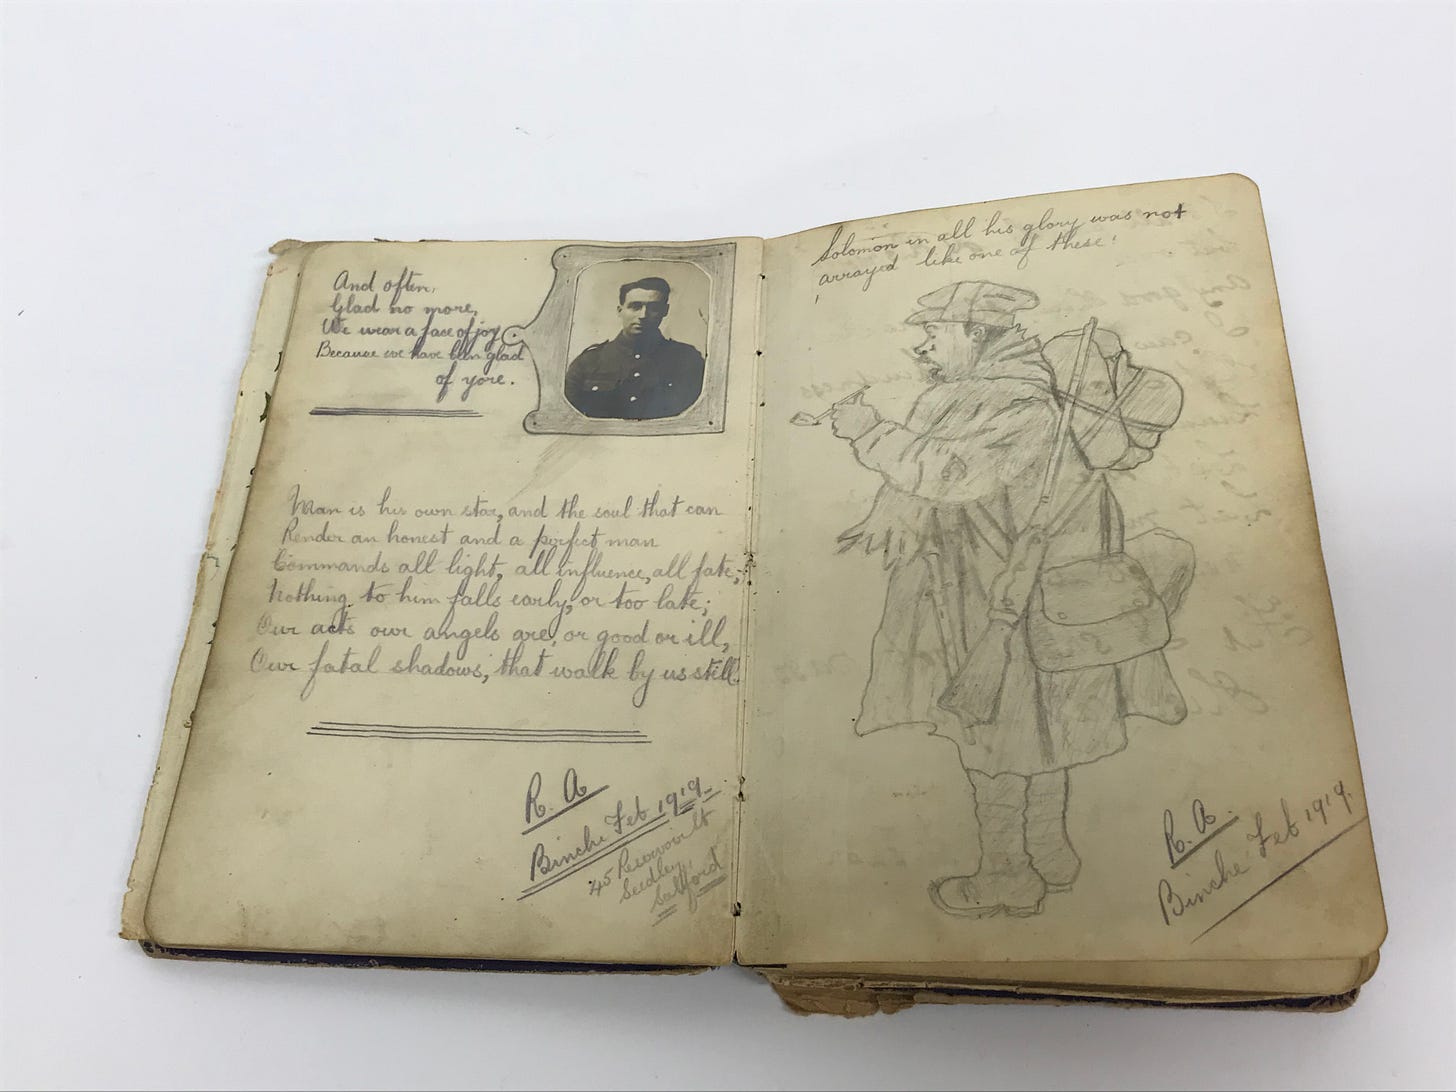 And often,
Glad no more,
We wear a face of joy
Because we have been glad
of yore.
Man is his own star, and the soul that can
Render an honest and a perfect man
Commands all light, all influence, all fate;
Nothing to him falls early, or too late;
Our acts our angels are, or good or ill,
Our fatal shadows, that walk by us still.
R. A
Binche Feb 1919.
45
Seedley,
Salford
Solomon in all his glory was not
arrayed like one of these!
R. A.
Binche Feb 1919.